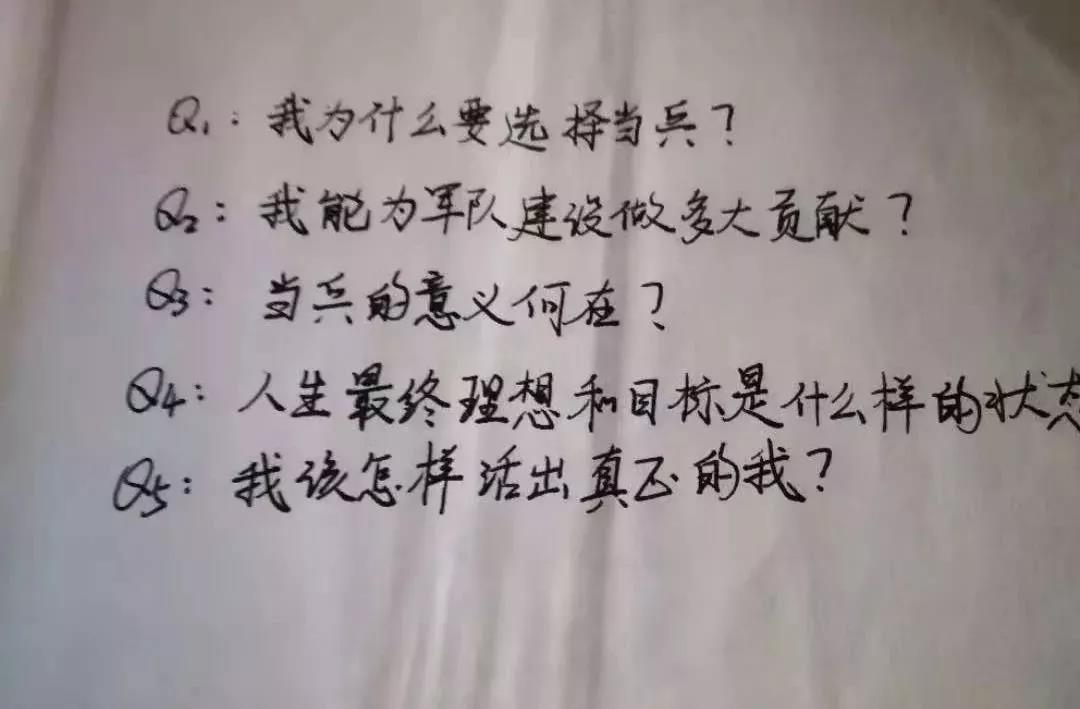 Q1：我为什么要选择当兵？
Q2：我能为军队建设做多大贡献？
Q3：当兵的意义何在？
Q4：人生最终理想和目标是什么样的状态
Q5：我该怎样活出真正的我？